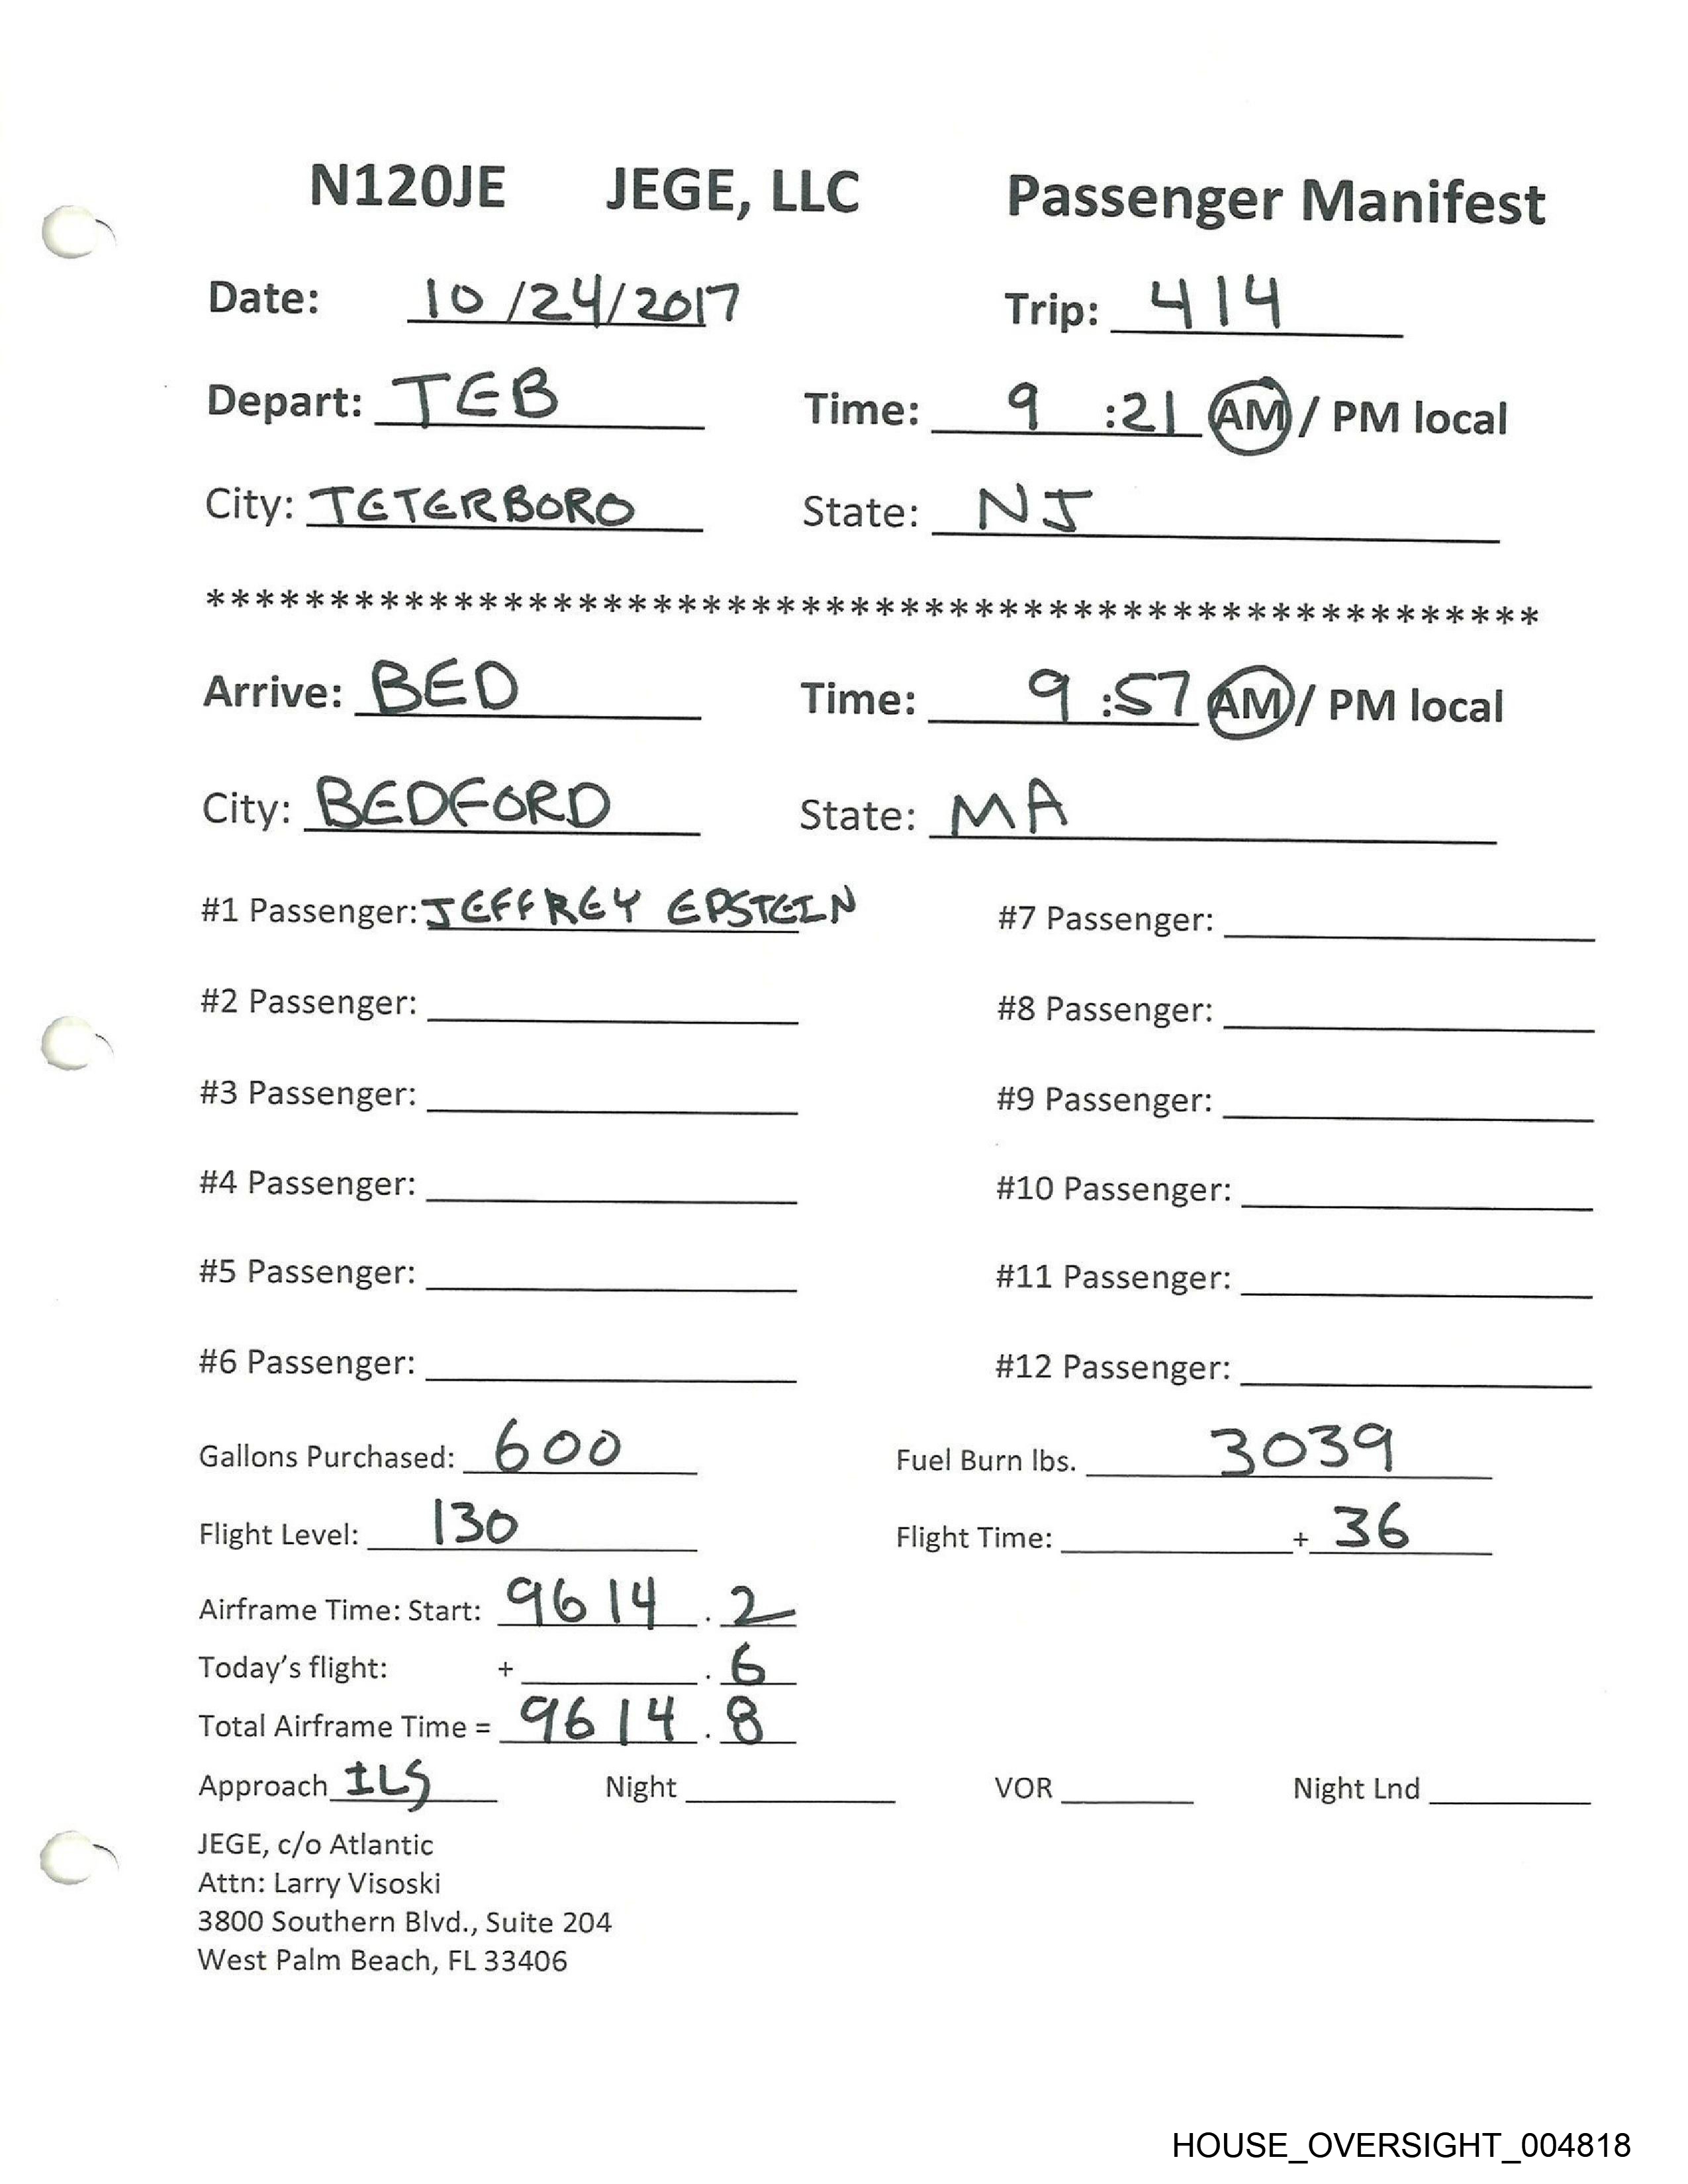 N120JE JEGE, LLC Passenger Manifest
Date: 10/24/2017 Trip: 414
Depart: TEB Time: 9 :21 AM / PM local
City: TETERBORO State: NJ
******************************************************
Arrive: BED Time: 9 :57 AM / PM local
City: BEDFORD State: MA
#1 Passenger: JEFFREY EPSTEIN #7 Passenger:
#2 Passenger: #8 Passenger:
#3 Passenger: #9 Passenger:
#4 Passenger: #10 Passenger:
#5 Passenger: #11 Passenger:
#6 Passenger: #12 Passenger:
Gallons Purchased: 600 Fuel Burn lbs. 3039
Flight Level: 130 Flight Time: + 36
Airframe Time: Start: 9614 . 2
Today's flight: + . 6
Total Airframe Time = 9614 . 8
Approach ILS Night VOR Night Lnd
JEGE, c/o Atlantic
Attn: Larry Visoski
3800 Southern Blvd., Suite 204
West Palm Beach, FL 33406
HOUSE_OVERSIGHT_004818